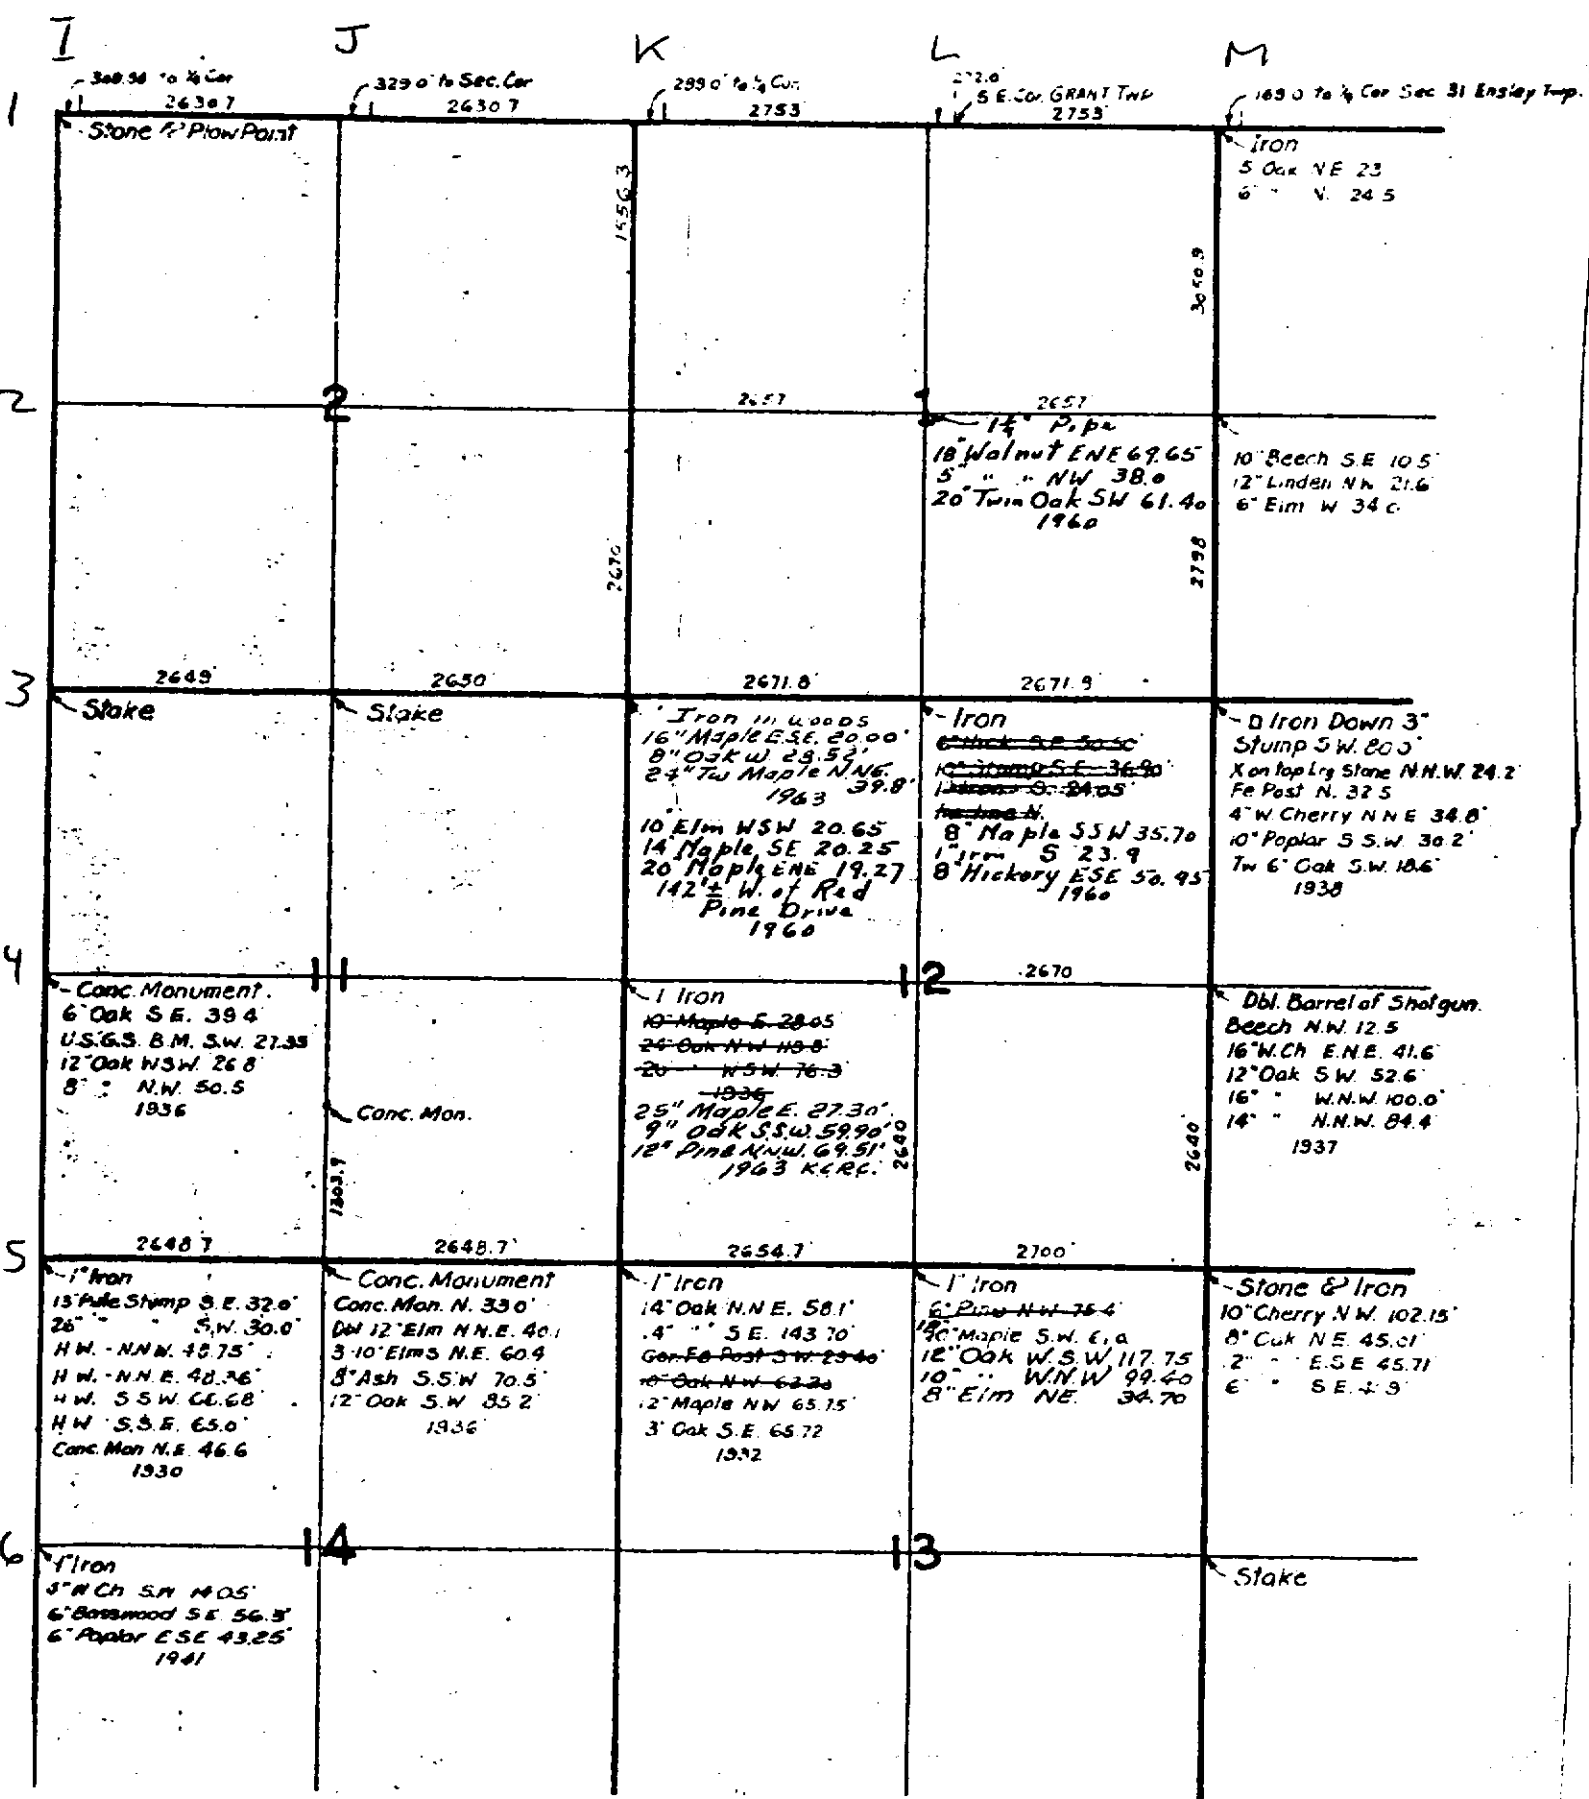 I J K L M
308.58 to ¼ Cor
329.0' to Sec. Cor
299.0' to ¼ Cor.
S.E. Cor. GRANT TWP
169.0 to ¼ Cor Sec 31 Ensley Twp.
1
2630.7
2630.7
2753
2753
Stone & Plow Point
Iron
5 Oak NE 23
6" " N. 24.5
1556.3
3050.9
2
2
2657
1
2657
1¼" Pipe
18" Walnut ENE 69.65
5" " " NW 38.0
20" Twin Oak SW 61.40
1960
10" Beech S.E 10.5'
12" Linden NW 21.6
6" Elm W 34.0
2670
2798
3
2649'
2650'
2671.8'
2671.9'
Stake
Stake
Iron in WOODS
16" Maple E.S.E. 20.00'
8" Oak W. 28.52'
24" Tw Maple N.N.E. 39.8'
1963
10" Elm WSW 20.65
14" Maple SE 20.25
20" Maple ENE 19.27
142'± W. of Red
Pine Drive
1960
Iron
6" Hick S.E. 50.50'
10" Stump S.E. 36.90'
8" Maple SSW 35.70
1" Iron S 23.9
8" Hickory ESE 50.95
1960
Iron Down 3"
Stump S.W.
X on top Lrg Stone N.N.W. 24.2'
Fe Post N. 32.5
4" W. Cherry N N E 34.8'
10" Poplar S.S.W. 30.2'
Tw 6" Oak S.W. 18.6'
1938
4
11
12
2670
Conc. Monument.
6" Oak S.E. 39.4
U.S.G.S. B.M. S.W. 27.35
12" Oak WSW. 26.8
8" " N.W. 50.5
1936
Conc. Mon.
1 Iron
10" Maple E. 28.05
24" Oak N.W 118.8'
20" " WSW. 76.3
1936
25" Maple E. 27.30'
9" Oak S.S.W. 59.90'
12" Pine N.N.W. 69.51'
1963 KCRC.
Dbl. Barrel of Shotgun.
Beech N.W. 12.5
16" W.Ch E.N.E. 41.6'
12" Oak S.W. 52.6'
16" " W.N.W. 100.0'
14" " N.N.W. 84.4'
1937
1303.9
2640
2640
5
2648.7
2648.7'
2654.7'
2700'
1" Iron
Stump S.E. 32.0'
26" " " S.W. 30.0'
H W. - NNW. 48.75'
H W. - N.N.E.
H W. S S W. 66.68'
H W S.S.E. 65.0'
Conc. Mon N.E. 46.6
1930
Conc. Monument
Conc. Mon. N. 33.0'
Dbl 12" Elm N N.E. 40.1
3-10" Elms N.E. 60.4
8" Ash S.S.W 70.5'
12" Oak S.W 85.2'
1936
1" Iron
14" Oak N.N E. 58.1'
.4" " S E. 143.70'
Cor. Fe Post S.W. 29.40'
10" Oak N.W.
12" Maple NW 65.75'
3" Oak S.E. 65.72
1932
1" Iron
6" Pine N.W. 75.4'
Maple S.W.
12" Oak W.S.W 117.75
10" " W.N.W 99.40
8" Elm NE. 34.70
Stone & Iron
10" Cherry N.W. 102.15'
8" Oak N E. 45.01'
" E.S E 45.71
6" " S E.
6
14
13
1" Iron
W Ch S.W
6" Basswood S E. 56.3'
6" Poplar E S E 43.25'
1941
Stake